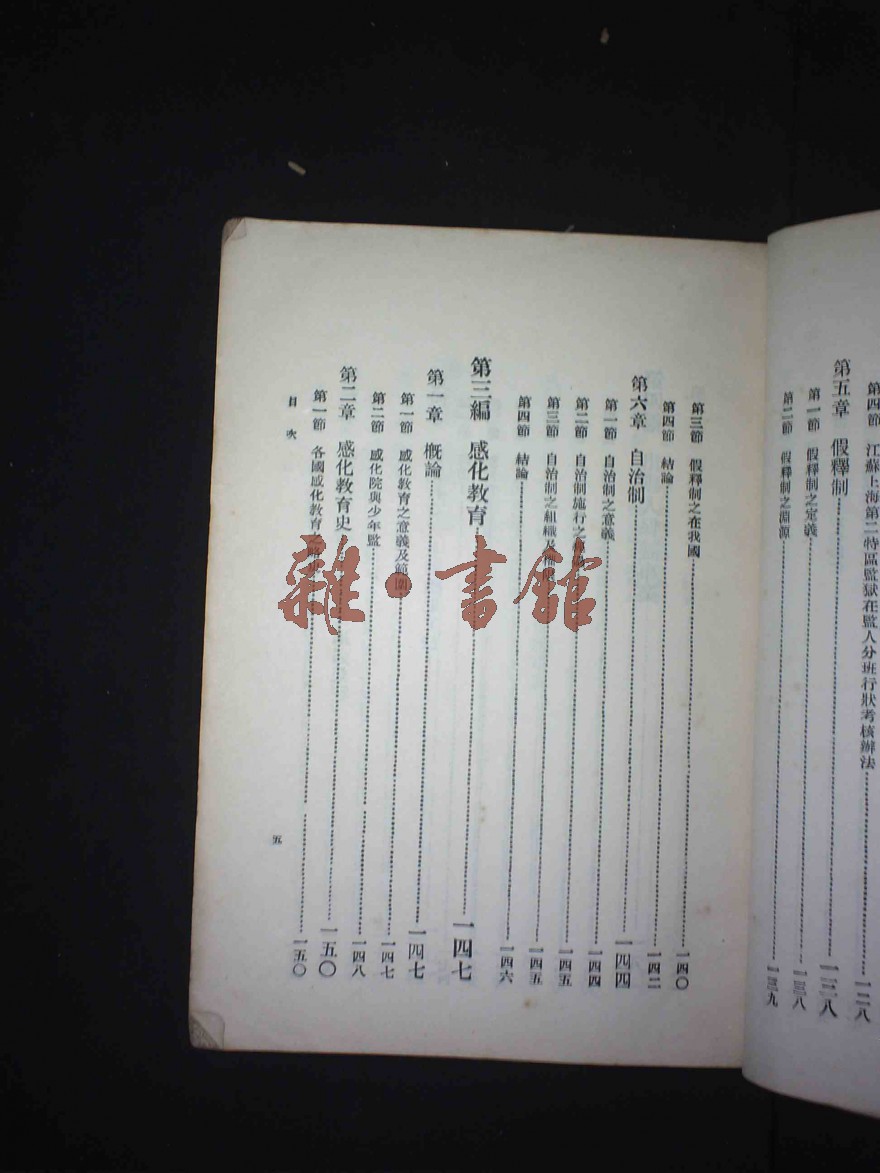 第四節 江蘇上海第二特區監獄在監人分班行狀考核辦法 一二八
第五章 假釋制 一三八
第一節 假釋制之定義 一三八
第二節 假釋制之淵源 一三九
第三節 假釋制之在我國 一四〇
第四節 結論 一四二
第六章 自治制 一四四
第一節 自治制之意義 一四四
第二節 自治制施行之 一四五
第三節 自治制之組織及 一四五
第四節 結論 一四六
第三編 感化教育 一四七
第一章 概論 一四七
第一節 感化教育之意義及範圍 一四七
第二節 感化院與少年監 一四八
第二章 感化教育史 一五〇
第一節 各國感化教育之 一五〇
目次
五
雜·書館